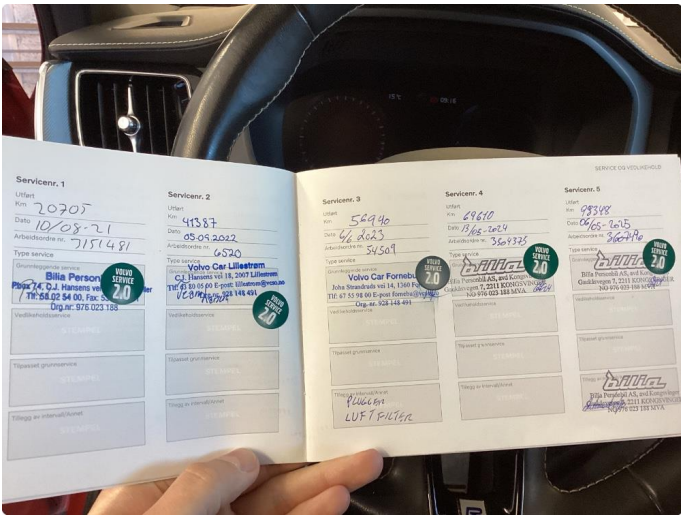 SERVICE OG VEDLIKEHOLD
Servicenr. 1
Utført
Km 20705
Dato 10/08-21
Arbeidsordre nr. 7151481
Type service
Grunnleggende service
Bilia Person
C.J. Hansens
Tlf: 58 02 54 00, Fax:
Org.nr: 976 023 188
VOLVO
SERVICE
2.0
Vedlikeholdsservice
STEMPEL
Tilpasset grunnservice
STEMPEL
Tillegg av intervall/Annet
STEMPEL
Servicenr. 2
Utført
Km 41387
Dato 05.09.2022
Arbeidsordre nr. 6520
Type service
Volvo Car Lillestrøm
C.J. Hansens vei 18, 2007 Lillestrøm
Tlf: 63 80 05 00 E-post: lillestrom@vcso.no
Org.nr. 928 148 491
VOLVO
SERVICE
2.0
Vedlikeholdsservice
Tilpasset grunnservice
STEMPEL
Tillegg av intervall/Annet
STEMPEL
Servicenr. 3
Utført
Km 56940
Dato 6/6 2023
Arbeidsordre nr. 54509
Type service
Grunnleggende service
Volvo Car Fornebu
John Strandruds vei 14, 1360
Tlf: 67 55 98 00 E-post
Org. nr. 928 148 491
VOLVO
SERVICE
2.0
Vedlikeholdsservice
Tilpasset grunnservice
Tillegg av intervall/Annet
PLUGGER
LUFTFILTER
Servicenr. 4
Utført
Km 69610
Dato 13/05-2024
Arbeidsordre nr. 3504375
Type service
bilia
Bilia Personbil AS, avd Kongsvinger
Gaukåsvegen 7, 2211 KONGSVINGER
NO 976 023 188 MVA
VOLVO
SERVICE
2.0
Vedlikeholdsservice
Tilpasset grunnservice
Tillegg av intervall/Annet
Servicenr. 5
Utført
Km 98348
Dato 06/05-2025
Arbeidsordre nr.
Type service
bilia
Bilia Personbil AS, avd Kongsvinger
Gaukåsvegen 7, 2211 KONGSVINGER
NO 976 023 188 MVA
VOLVO
SERVICE
2.0
Vedlikeholdsservice
Tilpasset grunnservice
Tillegg av intervall/Annet
bilia
Bilia Personbil AS, avd Kongsvinger
2211 KONGSVINGER
NO 976 023 188 MVA